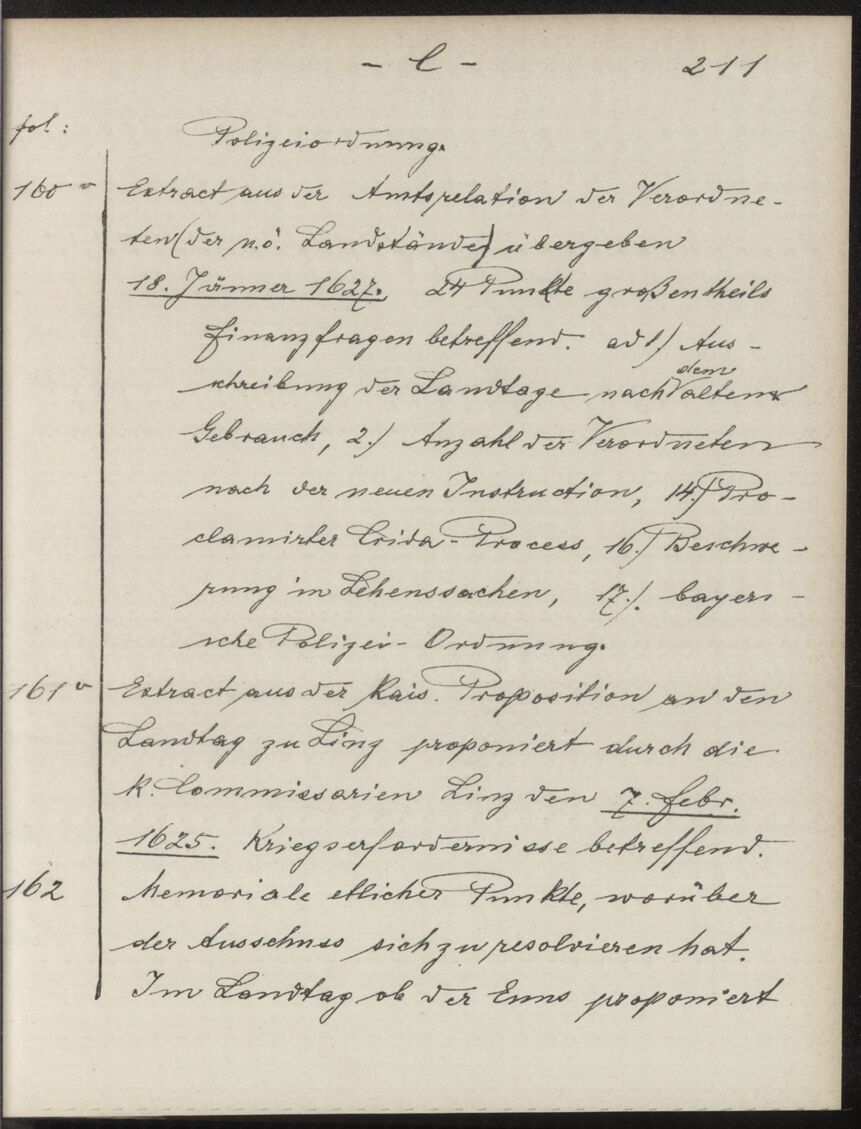 - l - 211
fol:
Polizeiordnung.
160 v Extract aus der Amtsrelation der Verordne-
ten (der n.ö. Landstände) übergeben
18. Jänner 1627. 24 Punkte großentheils
Finanzfragen betreffend. ad 1) Aus-
schreibung der Landtage nach dem alten
Gebrauch, 2.) Anzahl der Verordneten
nach der neuen Instruction, 14.) Pro-
clamirter Crida-Process, 16.) Beschwe-
rung in Lehenssachen, 17.). bayeri-
sche Polizei-Ordnung.
161 v Extract aus der Kais. Proposition an den
Landtag zu Linz proponiert durch die
k. Commissarien Linz den 7. Febr.
1625. Kriegserfordernisse betreffend.
162 Memoriale etlicher Punkte, worüber
der Ausschuss sich zu resolvieren hat.
Im Landtag ob der Enns proponiert